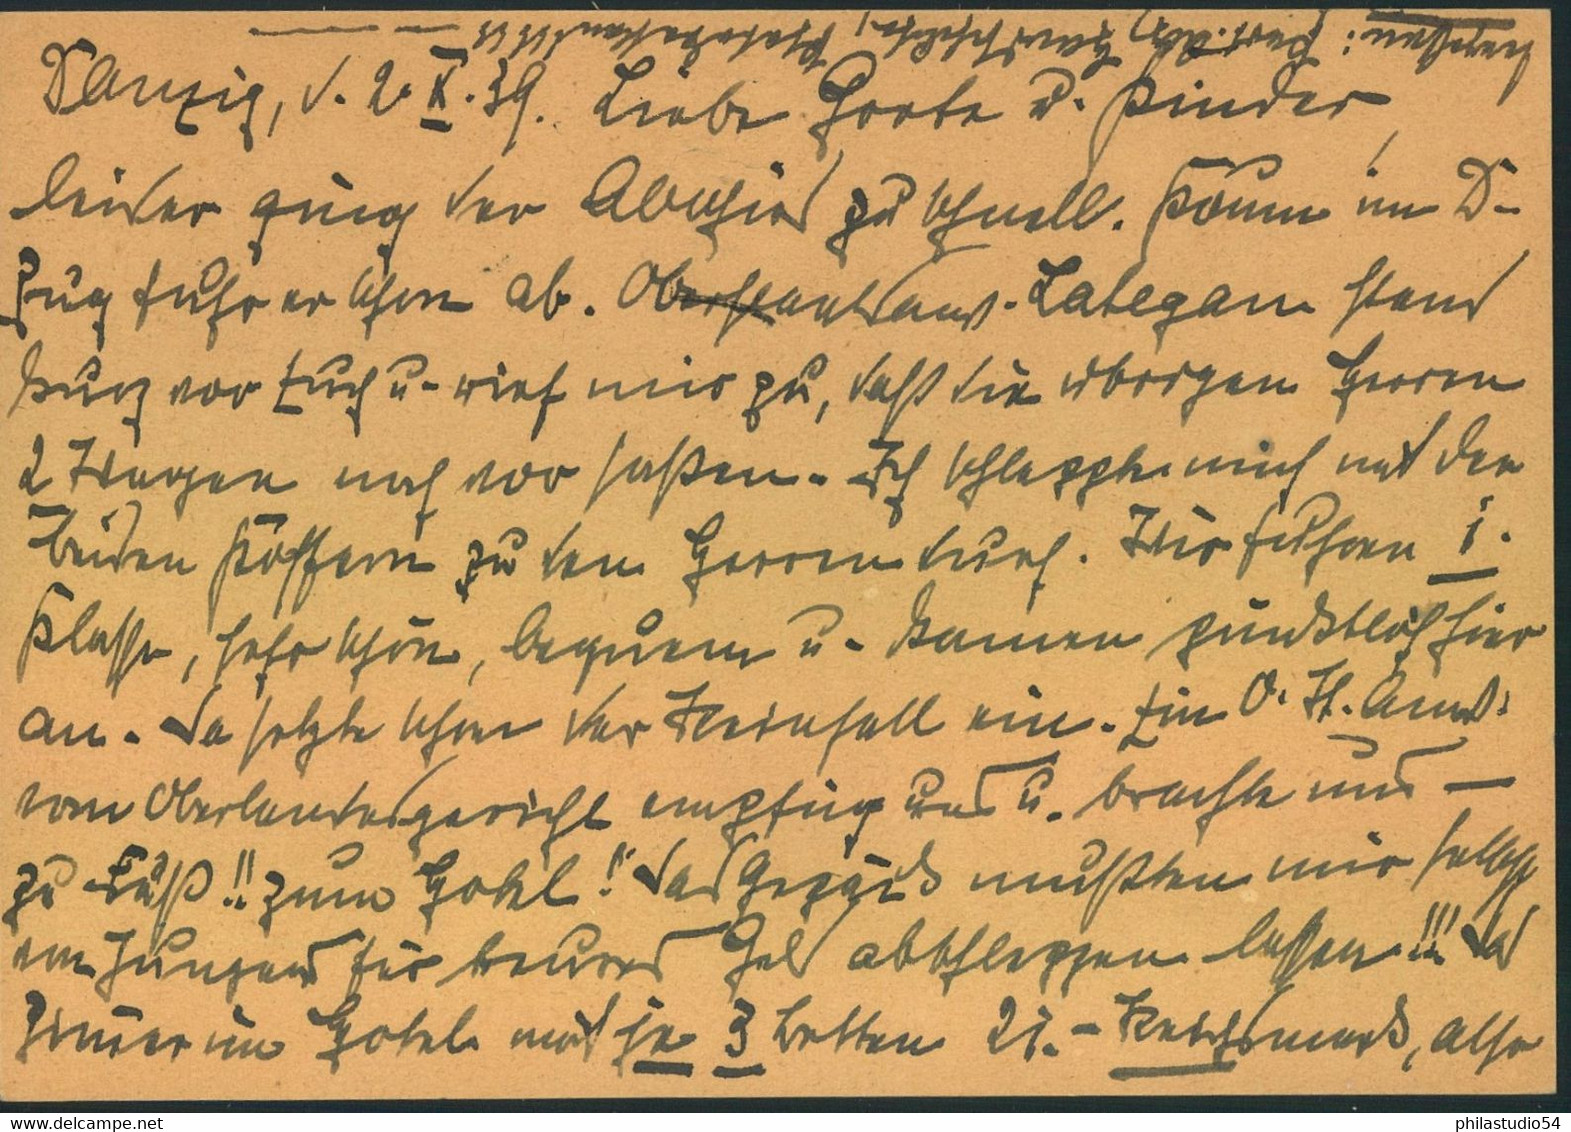 Danzig, d. 2. X. 39. Liebe Grete u. Kinder,
leider ging der Abschied zu schnell. Kaum im D-
Zug fuhr er schon ab. Oberstaatsanw. Lategan stand
kurz vor Euch u. rief mir zu, daß die übrigen Herren
2 Wagen noch vor saßen. Ich schleppte mich mit den
beiden Koffern zu den Herren durch. Wir fuhren I.
Klasse, sehr schön, bequem u. kamen pünktlich hier
an. Da setzte schon der Reinfall ein. Ein O. St. Anw.
vom Oberlandesgericht empfing uns u. brachte uns —
zu Fuß!! zum Hotel! Das Gepäck mußten wir selbst
von Jungens für teures Geld abschleppen lassen!!! Das
Zimmer im Hotel mit je 3 Betten 21.- Reichsmark, also
philastudio54